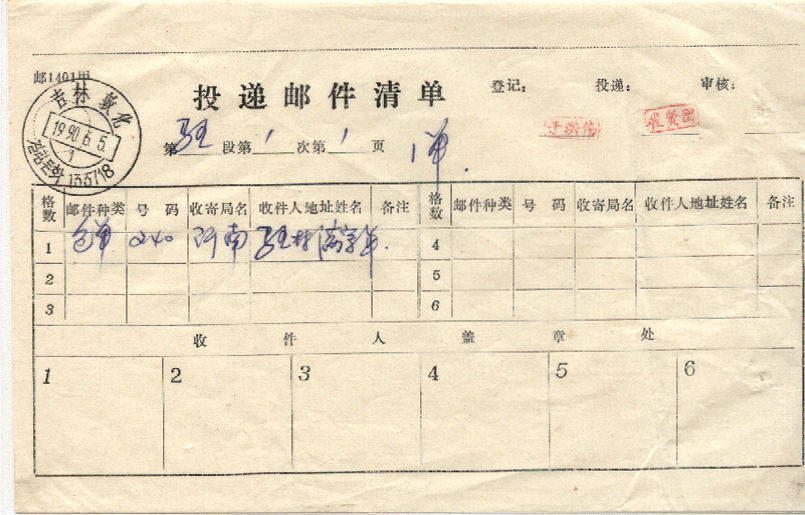 邮1401甲
投递邮件清单
登记： 投递： 审核：
吉林 敦化
1990.6.5.
1
길림돈화 133718
第 驻 段第 1 次第 1 页
1单
格数 邮件种类 号码 收寄局名 收件人地址姓名 备注 格数 邮件种类 号码 收寄局名 收件人地址姓名 备注
1 包单 240 河南 驻 4
2 5
3 6
收件人盖章处
1 2 3 4 5 6